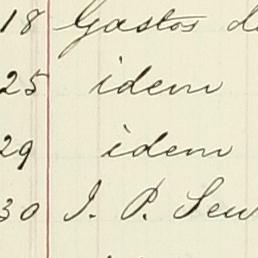 18 Gastos d
25 idem
29 idem
30 J. P. Sew